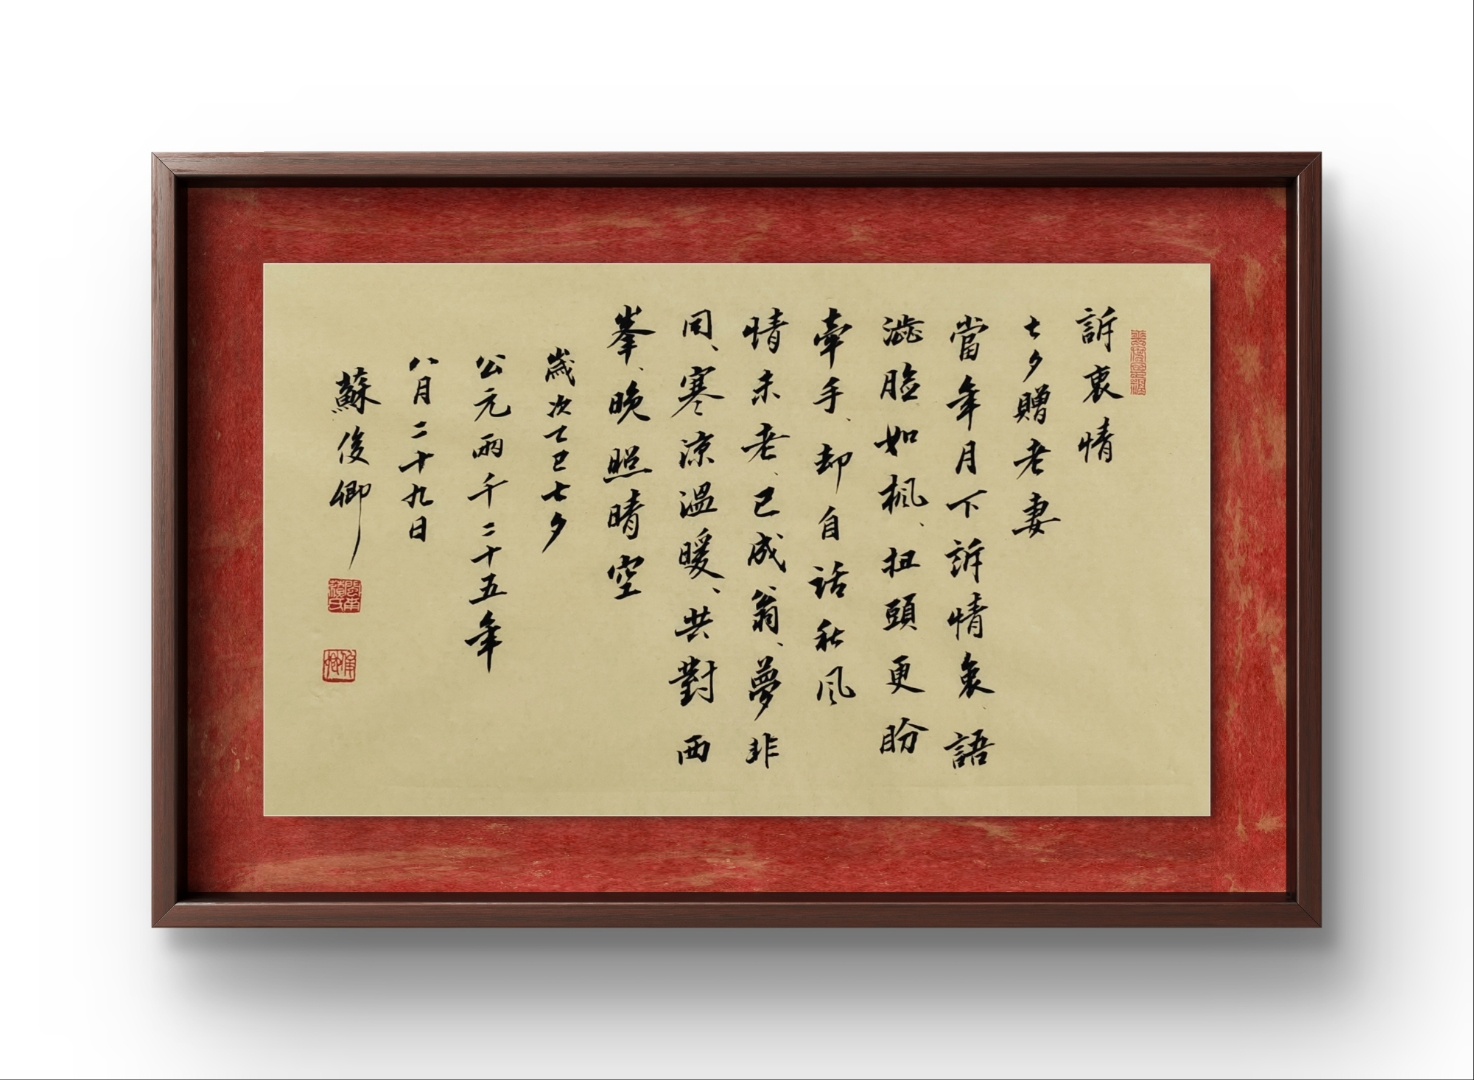 訴衷情
七夕贈老妻
當年月下訴情衷語
澁臉如楓、扭頭更盼
牽手、却自話秋風
情未老、已成翁、夢非
同、寒涼溫暖、共對西
峯、晚照晴空
歲次乙巳七夕
公元兩千二十五年
八月二十九日
蘇俊卿